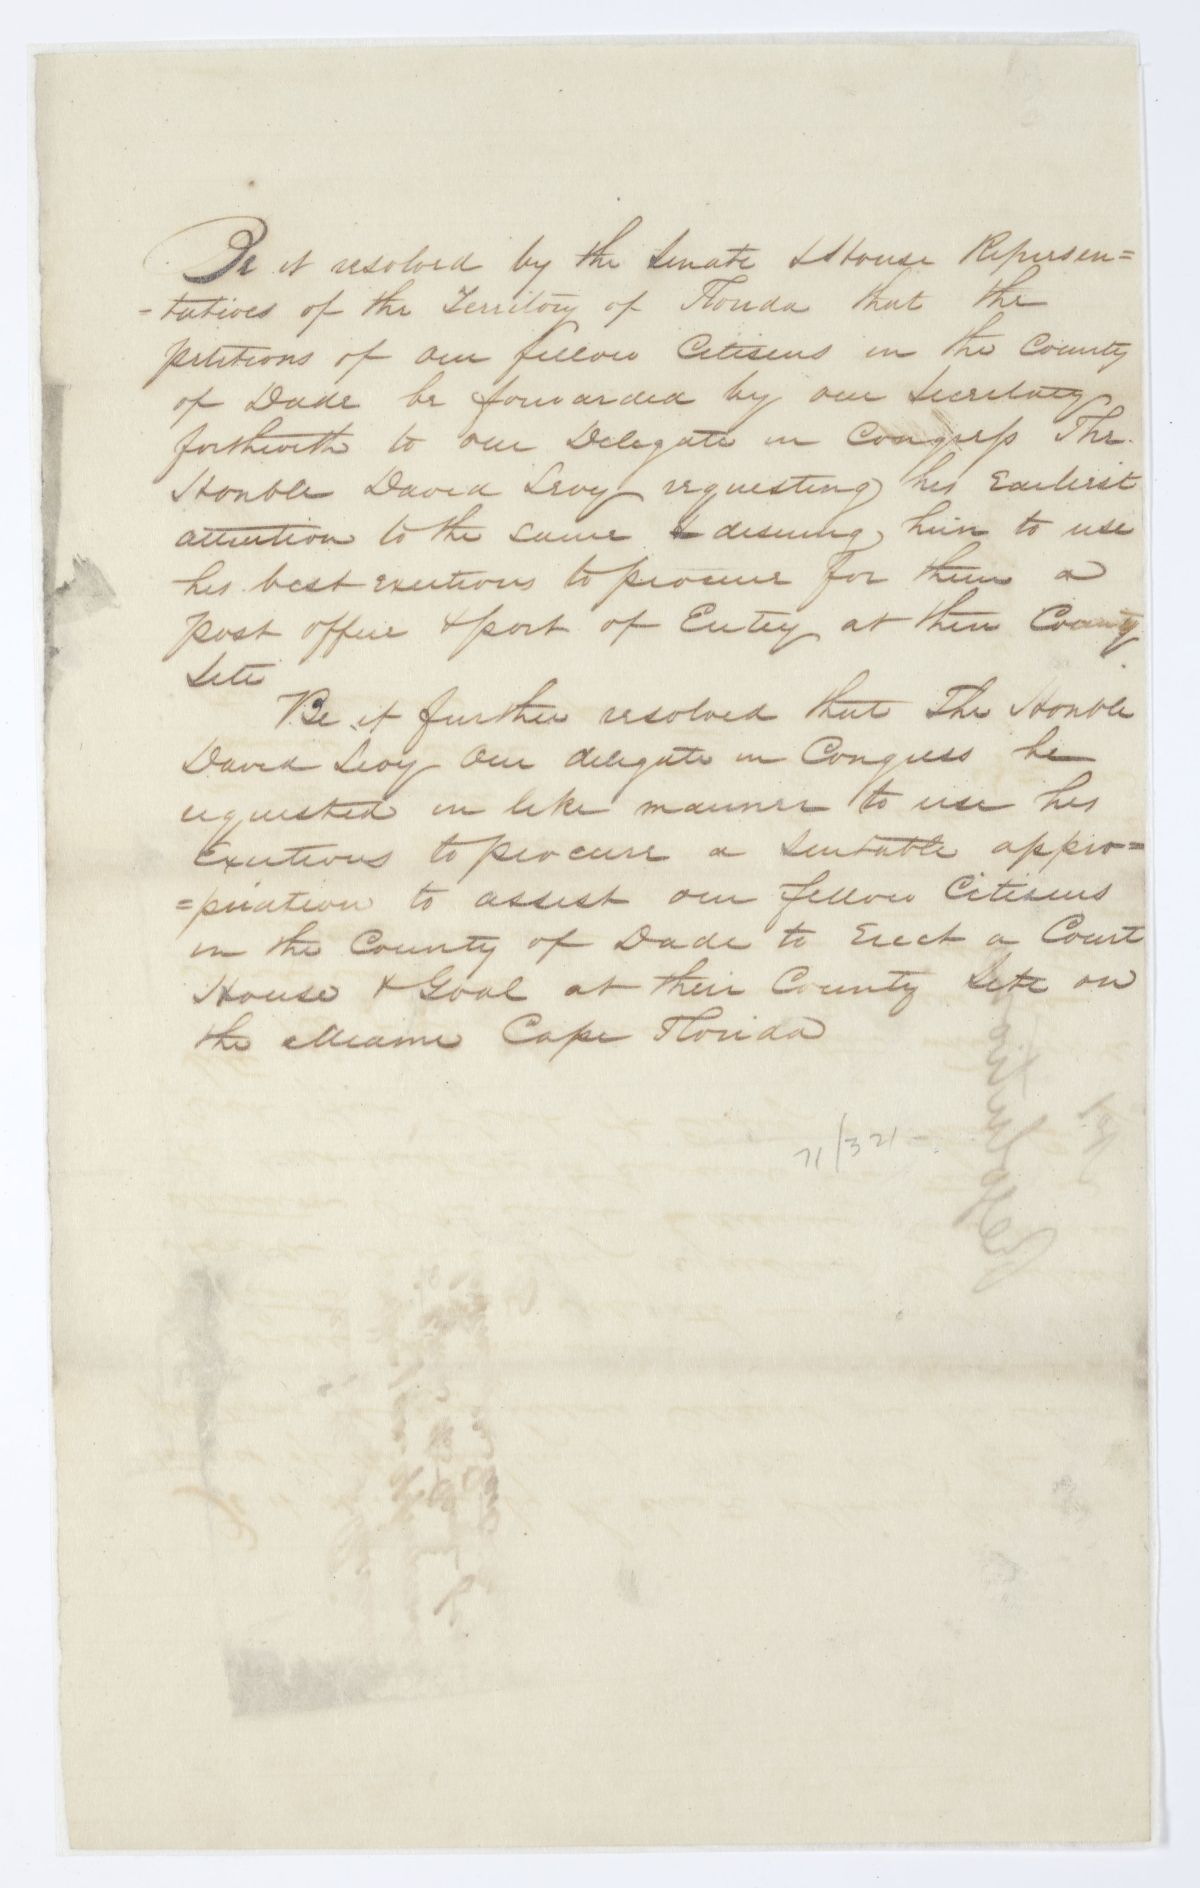 Be it resolved by the Senate & House Represen=
-tatives of the Territory of Florida that the
petitions of our fellow Citisens in the County
of Dade be forwarded by our Secretaty
forthwith to our Delegate in Congress The
Honble David Levy requesting his Earliest
attention to the same & desiring him to use
his best exertions to procure for them a
post office & port of Entry at their County
Site
Be it further resolved that The Honble
David Levy our delegate in Congress be
requested in like manner to use his
Exertions to procure a Suitable appro=
=priation to assist our fellow Citisens
in the County of Dade to Erect a Court
House & Goal at their County Site on
the Miami Cape Florida
71/321-